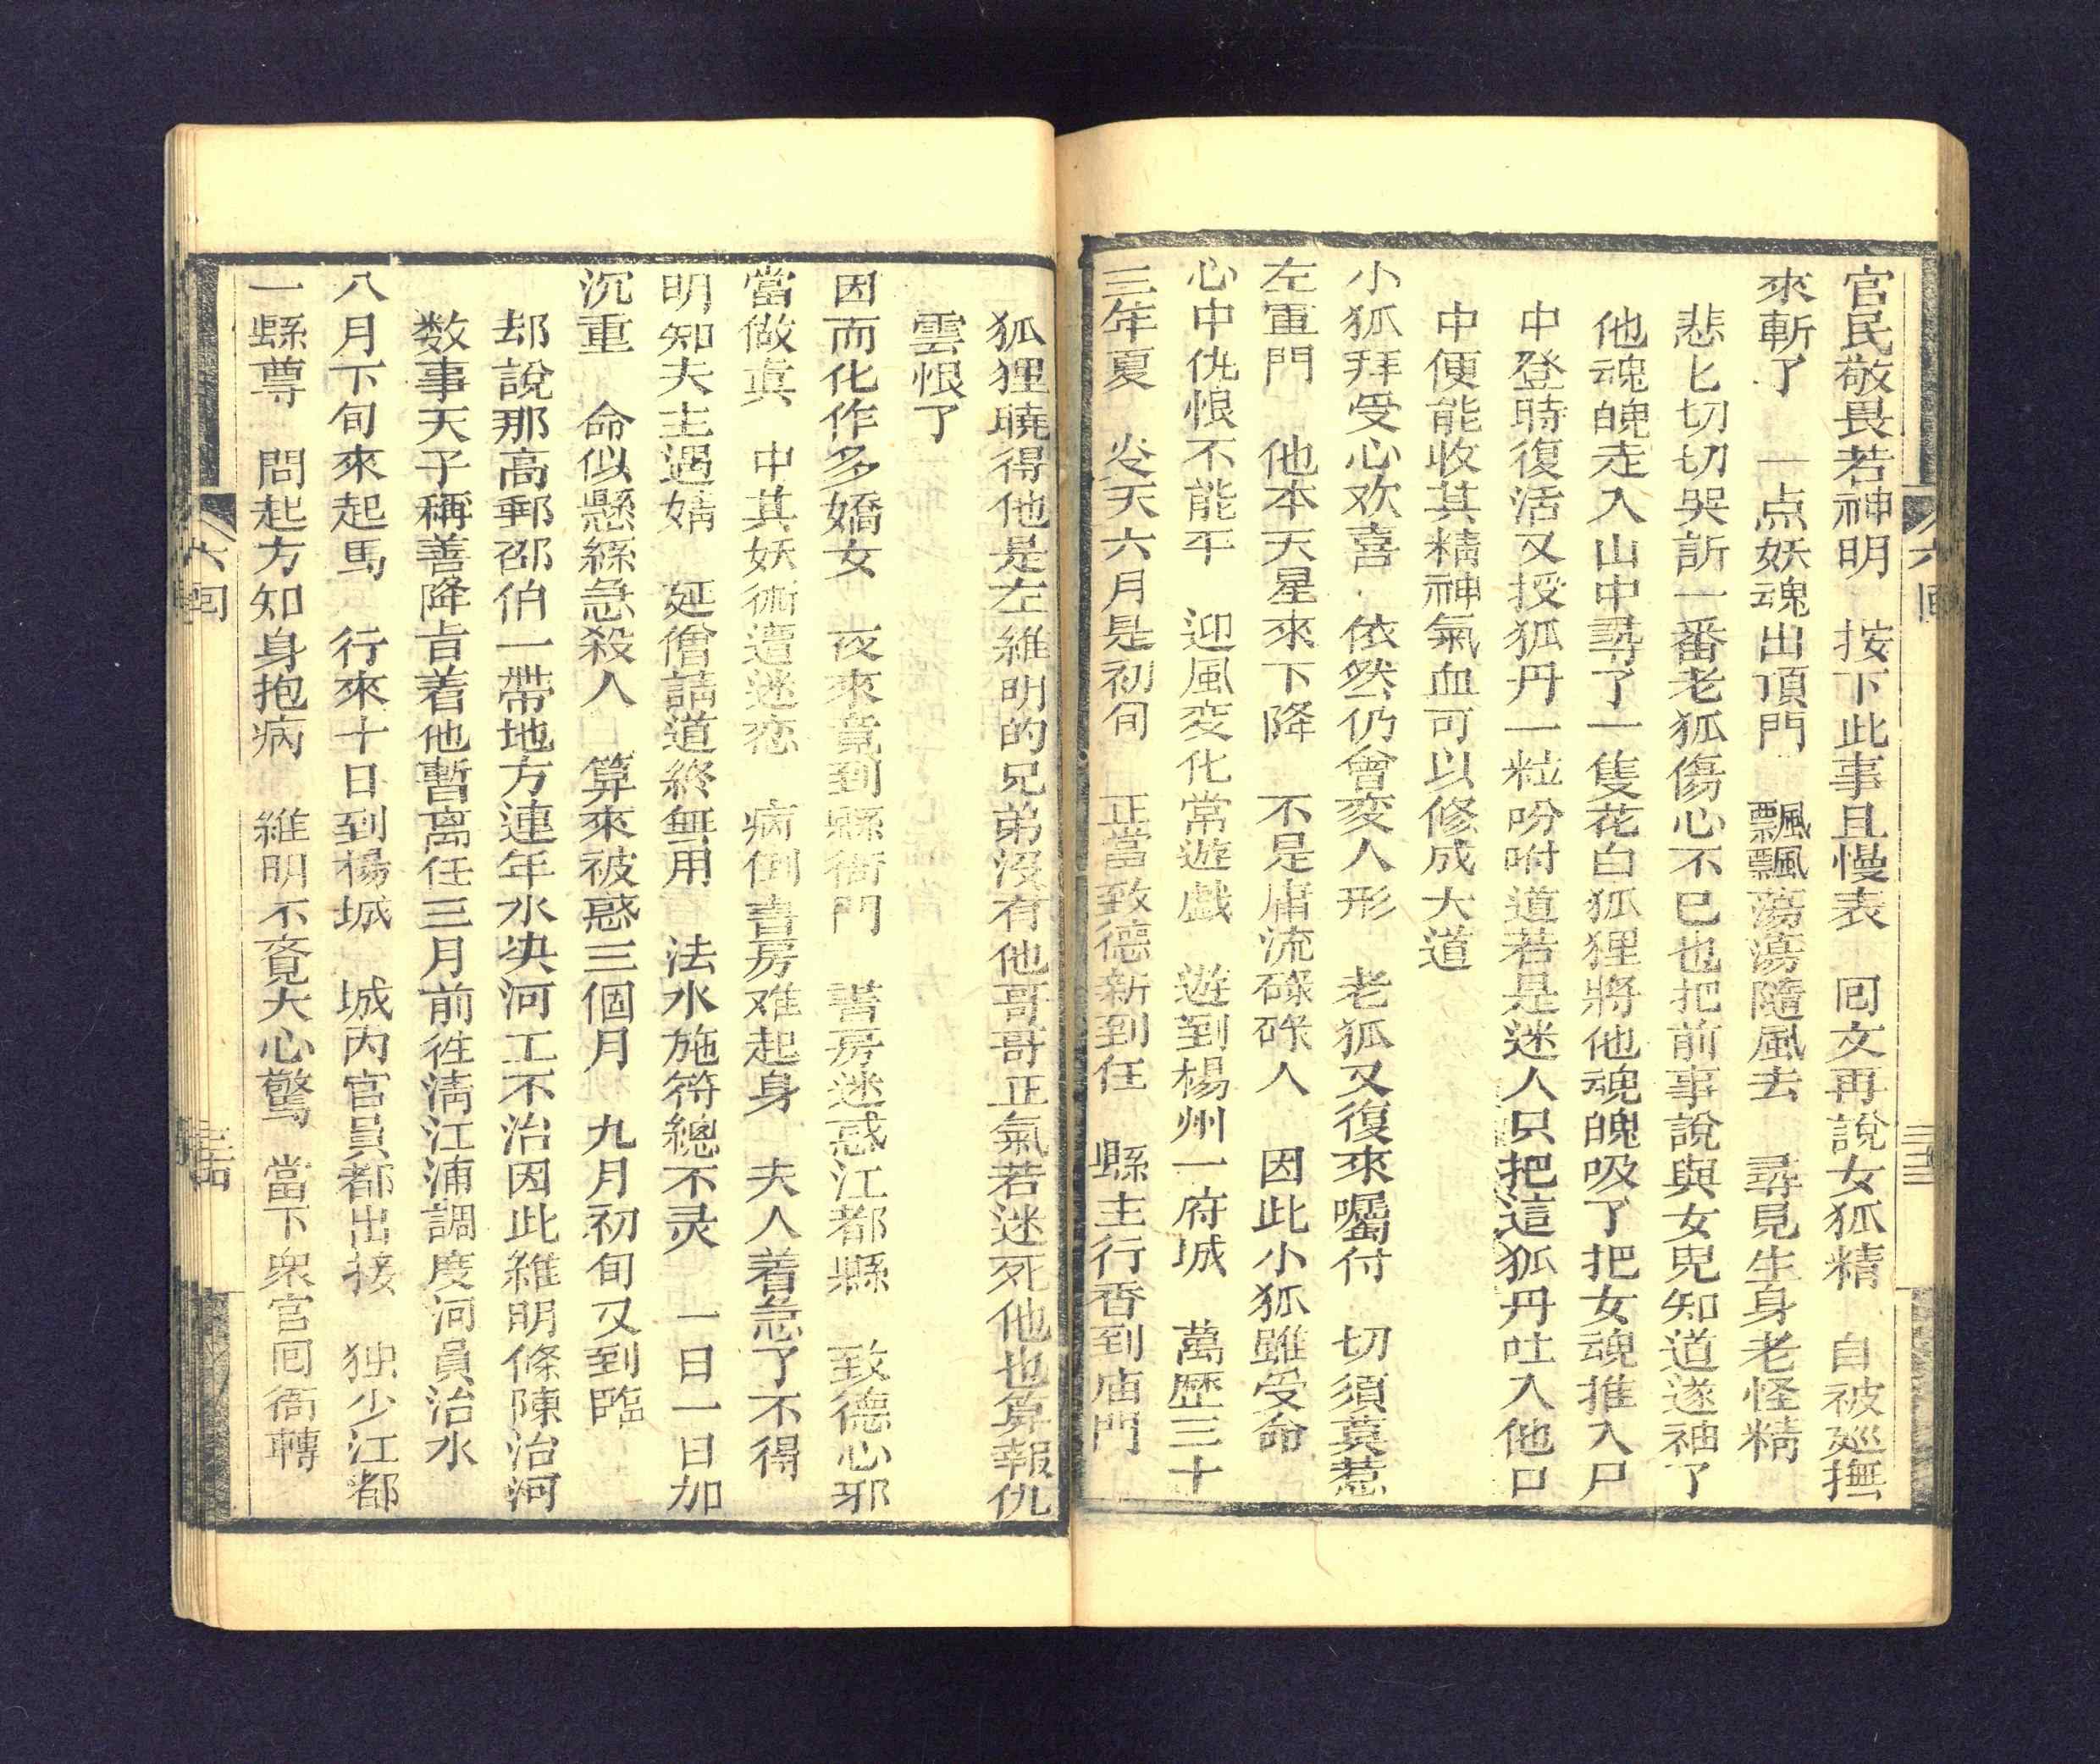 官民敬畏若神明　按下此事且慢表　回文再說女狐精　自被廵撫
來斬了　一点妖魂出頂門　飄飄蕩蕩隨風去　尋見生身老怪精
悲匕切切哭訴一番老狐傷心不已也把前事說與女兒知道遂袖了
他魂魄走入山中尋了一隻花白狐狸將他魂魄吸了把女魂推入尸
中登時復活又授狐丹一粒吩咐道若是迷人只把這狐丹吐入他口
中便能收其精神氣血可以修成大道
小狐拜受心欢喜　依然仍會変人形　老狐又復來囑付　切須莫惹
左軍門　他本天星來下降　不是庸流碌碌人　因此小狐雖受命
心中仇恨不能平　迎風変化常遊戲　遊到楊州一府城　萬歷三十
三年夏　炎天六月是初旬　正當致德新到任　縣主行香到庙門
六回
三三
狐狸曉得他是左維明的兄弟沒有他哥哥正氣若迷死他也算報仇
雲恨了
因而化作多嬌女　夜來竟到縣衙門　書房迷惑江都縣　致德心邪
當做真　中其妖術遭迷恋　病倒書房难起身　夫人着急了不得
明知夫主遇婧　延僧請道終無用　法水施符總不灵　一日一日加
沉重　命似懸絲急殺人　算來被惑三個月　九月初旬又到臨
却說那高郵邵伯一帶地方連年水决河工不治因此維明條陳治河
数事天子稱善降旨着他暫离任三月前徃清江浦調度河員治水
八月下旬來起馬　行來十日到楊城　城内官員都出接　独少江都
一縣尊　問起方知身抱病　維明不覔大心驚　當下衆官回衙轉
六回
三四